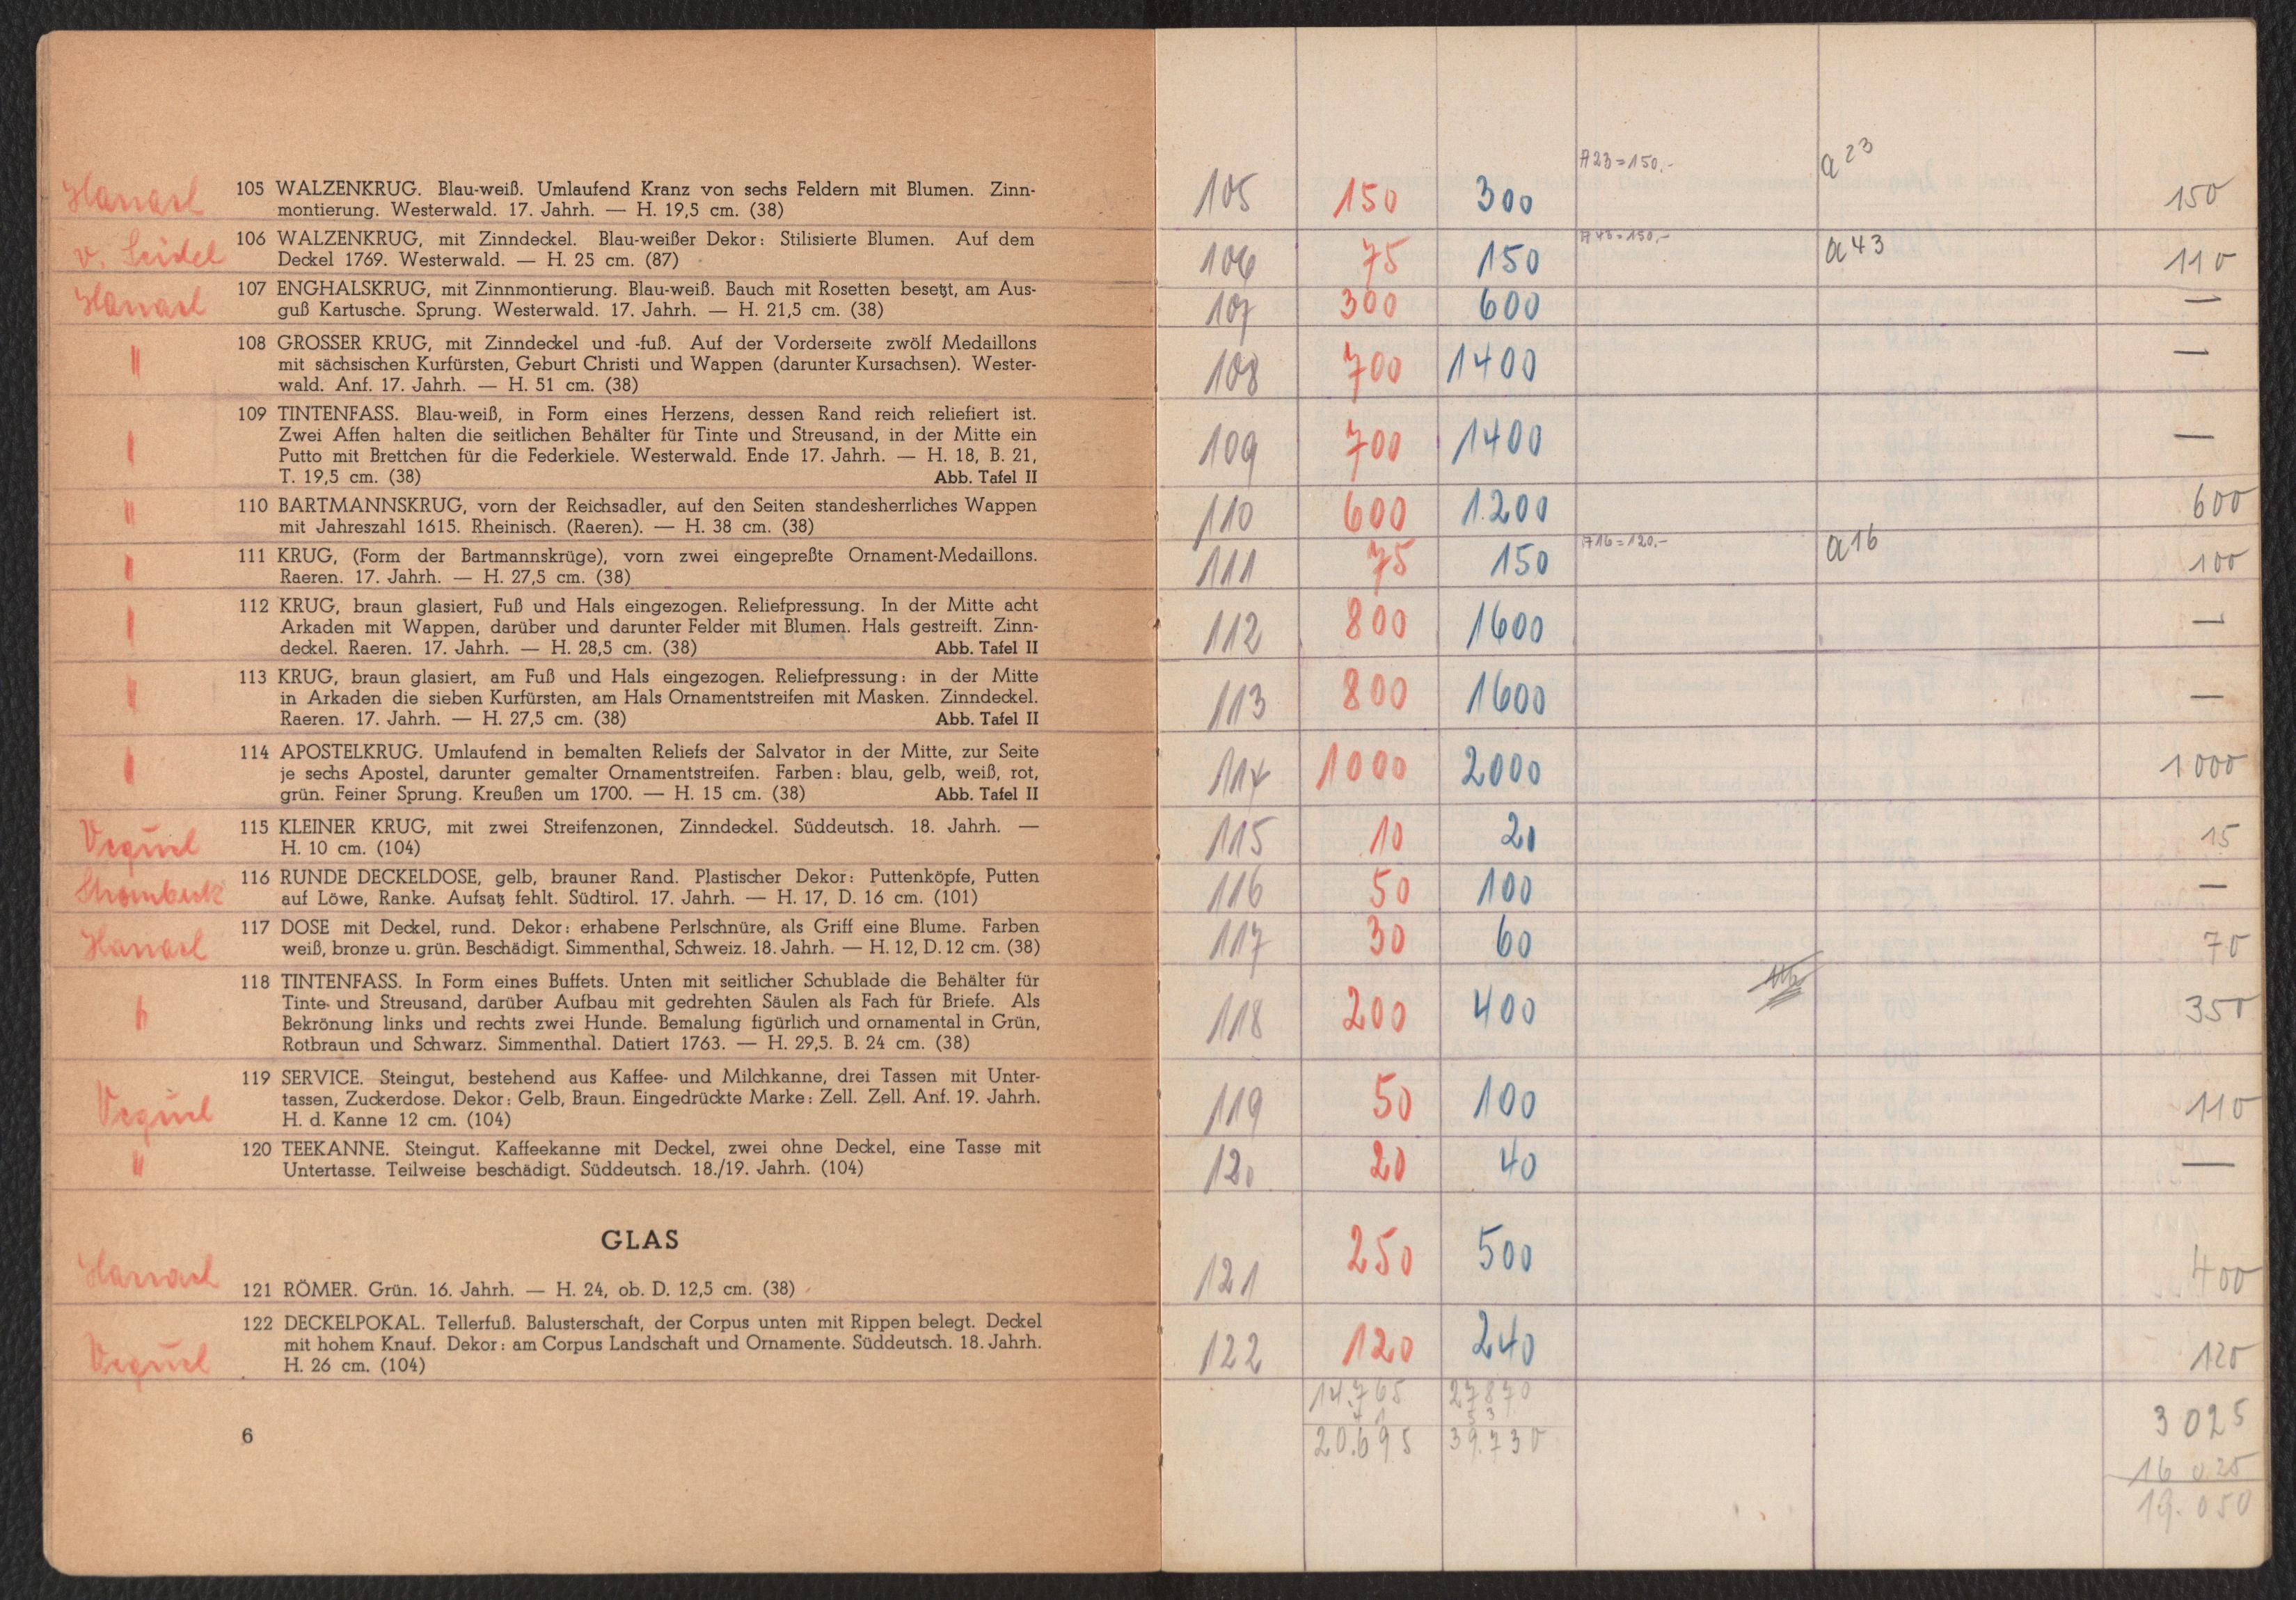 105 WALZENKRUG. Blau-weiß. Umlaufend Kranz von sechs Feldern mit Blumen. Zinn-
montierung. Westerwald. 17. Jahrh. — H. 19,5 cm. (38)
v. Seidel
106 WALZENKRUG, mit Zinndeckel. Blau-weißer Dekor: Stilisierte Blumen. Auf dem
Deckel 1769. Westerwald. — H. 25 cm. (87)
107 ENGHALSKRUG, mit Zinnmontierung. Blau-weiß. Bauch mit Rosetten besetzt, am Aus-
guß Kartusche. Sprung. Westerwald. 17. Jahrh. — H. 21,5 cm. (38)
"
108 GROSSER KRUG, mit Zinndeckel und -fuß. Auf der Vorderseite zwölf Medaillons
mit sächsischen Kurfürsten, Geburt Christi und Wappen (darunter Kursachsen). Wester-
wald. Anf. 17. Jahrh. — H. 51 cm. (38)
"
109 TINTENFASS. Blau-weiß, in Form eines Herzens, dessen Rand reich reliefiert ist.
Zwei Affen halten die seitlichen Behälter für Tinte und Streusand, in der Mitte ein
Putto mit Brettchen für die Federkiele. Westerwald. Ende 17. Jahrh. — H. 18, B. 21,
T. 19,5 cm. (38) Abb. Tafel II
"
110 BARTMANNSKRUG, vorn der Reichsadler, auf den Seiten standesherrliches Wappen
mit Jahreszahl 1615. Rheinisch. (Raeren). — H. 38 cm. (38)
"
111 KRUG, (Form der Bartmannskrüge), vorn zwei eingepreßte Ornament-Medaillons.
Raeren. 17. Jahrh. — H. 27,5 cm. (38)
"
112 KRUG, braun glasiert, Fuß und Hals eingezogen. Reliefpressung. In der Mitte acht
Arkaden mit Wappen, darüber und darunter Felder mit Blumen. Hals gestreift. Zinn-
deckel. Raeren. 17. Jahrh. — H. 28,5 cm. (38) Abb. Tafel II
"
113 KRUG, braun glasiert, am Fuß und Hals eingezogen. Reliefpressung: in der Mitte
in Arkaden die sieben Kurfürsten, am Hals Ornamentstreifen mit Masken. Zinndeckel.
Raeren. 17. Jahrh. — H. 27,5 cm. (38) Abb. Tafel II
"
114 APOSTELKRUG. Umlaufend in bemalten Reliefs der Salvator in der Mitte, zur Seite
je sechs Apostel, darunter gemalter Ornamentstreifen. Farben: blau, gelb, weiß, rot,
grün. Feiner Sprung. Kreußen um 1700. — H. 15 cm. (38) Abb. Tafel II
Vequel
115 KLEINER KRUG, mit zwei Streifenzonen, Zinndeckel. Süddeutsch. 18. Jahrh. —
H. 10 cm. (104)
Strombeck
116 RUNDE DECKELDOSE, gelb, brauner Rand. Plastischer Dekor: Puttenköpfe, Putten
auf Löwe, Ranke. Aufsatz fehlt. Südtirol. 17. Jahrh. — H. 17, D. 16 cm. (101)
117 DOSE mit Deckel, rund. Dekor: erhabene Perlschnüre, als Griff eine Blume. Farben
weiß, bronze u. grün. Beschädigt. Simmenthal, Schweiz. 18. Jahrh. — H. 12, D. 12 cm. (38)
"
118 TINTENFASS. In Form eines Buffets. Unten mit seitlicher Schublade die Behälter für
Tinte und Streusand, darüber Aufbau mit gedrehten Säulen als Fach für Briefe. Als
Bekrönung links und rechts zwei Hunde. Bemalung figürlich und ornamental in Grün,
Rotbraun und Schwarz. Simmenthal. Datiert 1763. — H. 29,5. B. 24 cm. (38)
Vequel
119 SERVICE. Steingut, bestehend aus Kaffee- und Milchkanne, drei Tassen mit Unter-
tassen, Zuckerdose. Dekor: Gelb, Braun. Eingedrückte Marke: Zell. Zell. Anf. 19. Jahrh.
H. d. Kanne 12 cm. (104)
"
120 TEEKANNE. Steingut. Kaffeekanne mit Deckel, zwei ohne Deckel, eine Tasse mit
Untertasse. Teilweise beschädigt. Süddeutsch. 18./19. Jahrh. (104)
GLAS
121 RÖMER. Grün. 16. Jahrh. — H. 24, ob. D. 12,5 cm. (38)
Vequel
122 DECKELPOKAL. Tellerfuß. Balusterschaft, der Corpus unten mit Rippen belegt. Deckel
mit hohem Knauf. Dekor: am Corpus Landschaft und Ornamente. Süddeutsch. 18. Jahrh.
H. 26 cm. (104)
6
A23=150.- a 23
105 150 300 150
A43=150,- a 43
106 75 150 110
107 300 600 —
108 700 1400 —
109 700 1400 —
110 600 1.200 600
A16=120.- a 16
111 75 150 100
112 800 1600 —
113 800 1600 —
114 1000 2000 1000
115 10 20 15
116 50 100 —
117 30 60 70
118 200 400 350
119 50 100 110
120 20 40 —
121 250 500 400
122 120 240 120
14.765 27870 3025
20.695 39.730 16 025
19.050